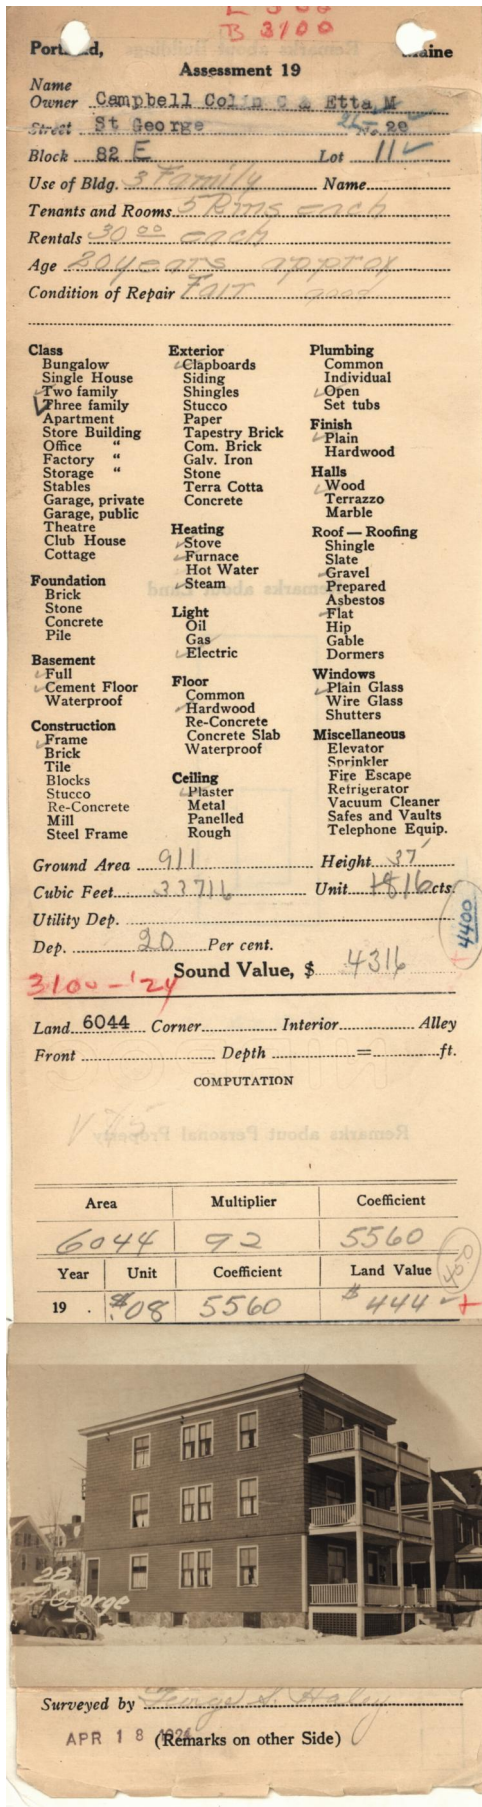 B 3100
Portland, Maine
Assessment 19
Name
Owner Campbell Colin C & Etta M
Street St George No 28
Block 82 E Lot 11 ✓
Use of Bldg. 3 Family Name
Tenants and Rooms 5 Rms each
Rentals 30 00 each
Age 20 years approx
Condition of Repair Fair good
Class
Bungalow
Single House
Two family
Three family
Apartment
Store Building
Office "
Factory "
Storage "
Stables
Garage, private
Garage, public
Theatre
Club House
Cottage
Foundation
Brick
Stone
Concrete
Pile
Basement
Full
Cement Floor
Waterproof
Construction
Frame
Brick
Tile
Blocks
Stucco
Re-Concrete
Mill
Steel Frame
Exterior
Clapboards
Siding
Shingles
Stucco
Paper
Tapestry Brick
Com. Brick
Galv. Iron
Stone
Terra Cotta
Concrete
Heating
Stove
Furnace
Hot Water
Steam
Light
Oil
Gas
Electric
Floor
Common
Hardwood
Re-Concrete
Concrete Slab
Waterproof
Ceiling
Plaster
Metal
Panelled
Rough
Plumbing
Common
Individual
Open
Set tubs
Finish
Plain
Hardwood
Halls
Wood
Terrazzo
Marble
Roof — Roofing
Shingle
Slate
Gravel
Prepared
Asbestos
Flat
Hip
Gable
Dormers
Windows
Plain Glass
Wire Glass
Shutters
Miscellaneous
Elevator
Sprinkler
Fire Escape
Refrigerator
Vacuum Cleaner
Safes and Vaults
Telephone Equip.
Ground Area 911 Height 37'
Cubic Feet 33716 Unit 16 cts.
Utility Dep.
4400
Dep. 20 Per cent.
Sound Value, $ 4316
3100 - '24
Land 6044 Corner Interior Alley
Front Depth = ft.
COMPUTATION
V 75
Area Multiplier Coefficient
6044 92 5560
Year Unit Coefficient Land Value
450
19 . $.08 5560 $ 444 ✓ +
28
St. George
Surveyed by George S. Haley
APR 18 1924
(Remarks on other Side)